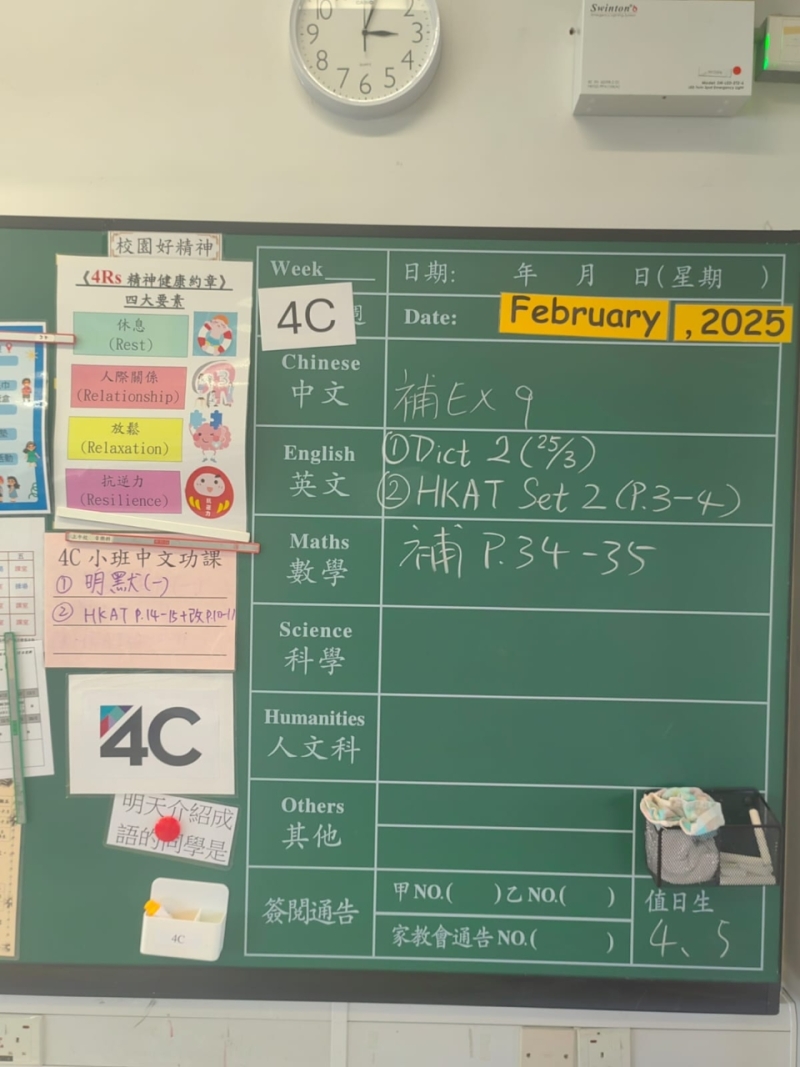 10
2
9
3
8
4
7
6
5
Swinton
校園好精神
《4Rs 精神健康約章》
四大要素
休息
(Rest)
人際關係
(Relationship)
放鬆
(Relaxation)
抗逆力
(Resilience)
4C 小班中文功課
① 明默(一)
② HKAT P.14-15+改P.10-11
4C
明天介紹成
語的同學是
4C
Week
日期: 年 月 日(星期 )
4C 週
Date: February , 2025
Chinese
中文
補 Ex 9
English
英文
① Dict 2 (25/3)
② HKAT Set 2 (P.3-4)
Maths
數學
補 P.34-35
Science
科學
Humanities
人文科
Others
其他
簽閱通告
甲NO.( )乙NO.( )
家教會通告NO.( )
值日生
4、5